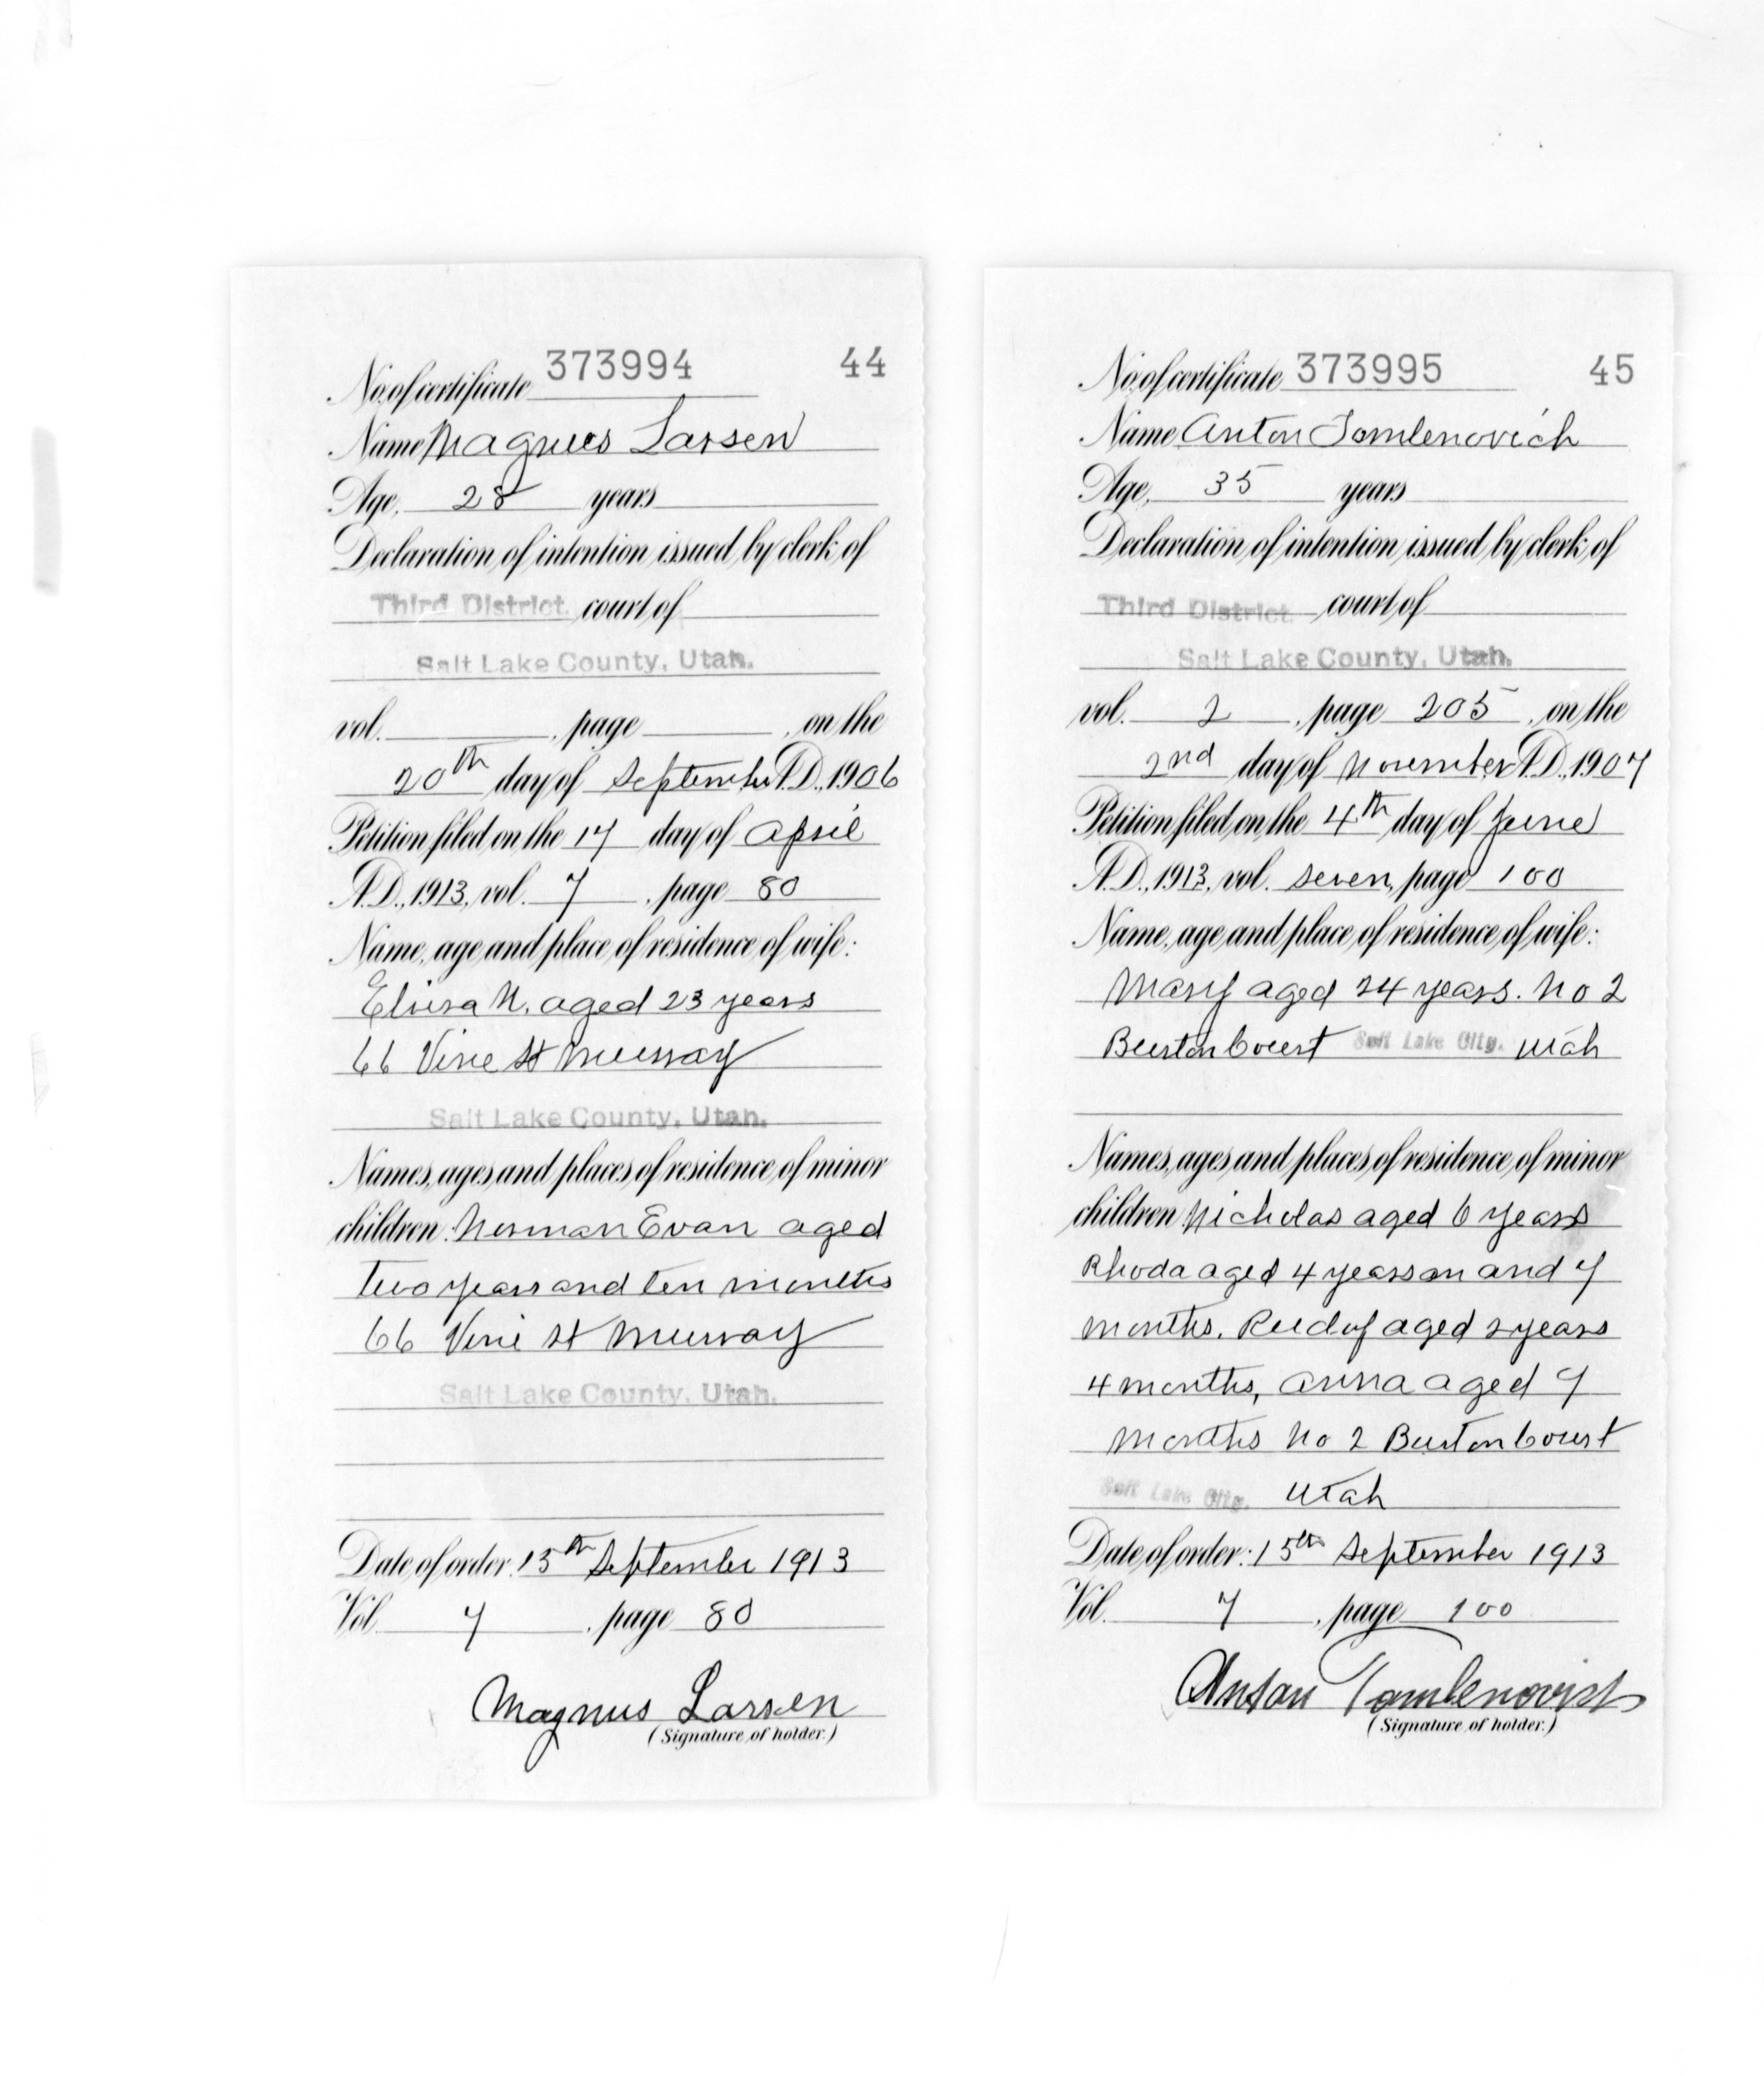 No. of certificate 373994 44
Name Magnus Larsen
Age, 28 years
Declaration of intention issued by clerk of
Third District. court of
Salt Lake County, Utah.
vol. , page , on the
20th day of September A.D., 1906
Petition filed on the 17 day of April
A.D., 1913, vol. 7, page 80
Name, age and place of residence of wife:
N. aged 23 years
66 Vine St Murray
Salt Lake County, Utah.
Names, ages and places of residence of minor
children: Norman Evan aged
two years and ten months
66 Vine St Murray
Salt Lake County, Utah.
Date of order: 15th September 1913
Vol. 7, page 80
Magnus Larsen
(Signature of holder.)
No. of certificate 373995 45
Name Anton Tomlenovich
Age, 35 years
Declaration of intention issued by clerk of
Third District. court of
Salt Lake County, Utah.
vol. 2, page 205, on the
2nd day of November A.D., 1907
Petition filed on the 4th day of June
A.D., 1913, vol. seven, page 100
Name, age and place of residence of wife:
Mary aged 24 years. No 2
Burton Court Salt Lake City, Utah
Names, ages and places of residence of minor
children: Nicholas aged 6 years
Rhoda aged 4 years and 7
months. Rudof aged 2 years
4 months, Anna aged 9
months No 2 Burton Court
Salt Lake City, Utah
Date of order: 15th September 1913
Vol. 7, page 100
Anton Tomlenovich
(Signature of holder.)